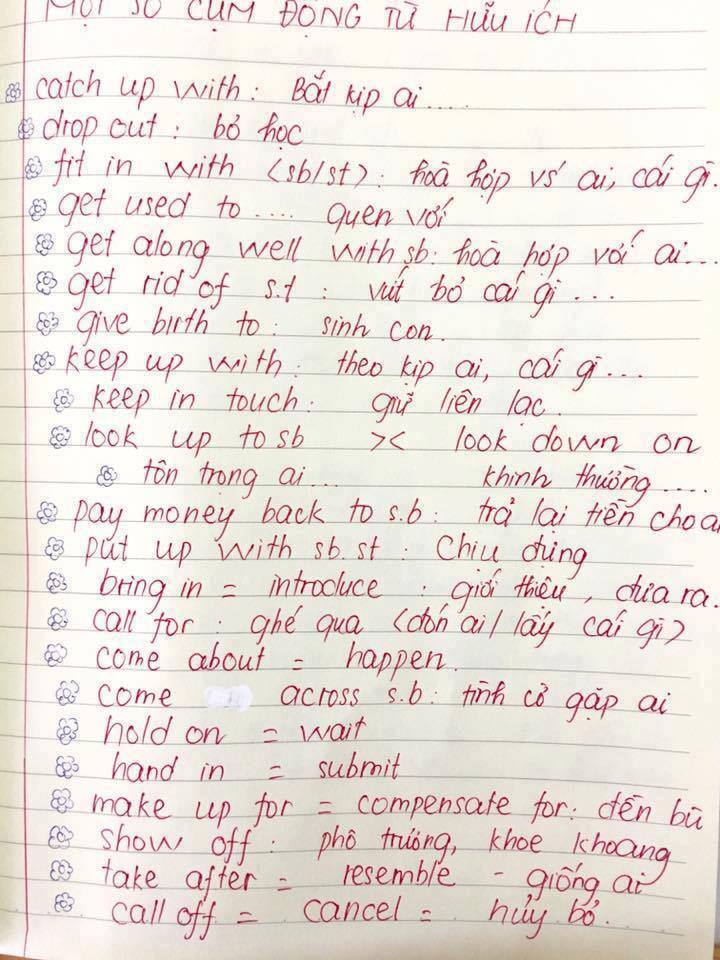 MỘT SỐ CỤM ĐỘNG TỪ HỮU ÍCH
catch up with: Bắt kịp ai....
drop out: bỏ học
fit in with (sb/st): hoà hợp vs ai, cái gì.
get used to .... quen với
get along well with sb: hoà hợp với ai...
get rid of s.t: vứt bỏ cái gì...
give birth to: sinh con.
keep up with: theo kịp ai, cái gì...
keep in touch: giữ liên lạc.
look up to sb >< look down on
tôn trọng ai... khinh thường....
pay money back to s.b: trả lại tiền cho a
put up with sb.st: Chịu đựng
bring in = introduce: giới thiệu, đưa ra.
call for: ghé qua (đón ai/ lấy cái gì)
come about = happen.
come across s.b: tình cờ gặp ai
hold on = wait
hand in = submit
make up for = compensate for: đền bù
show off: phô trương, khoe khoang
take after = resemble - giống ai
call off = cancel = hủy bỏ.